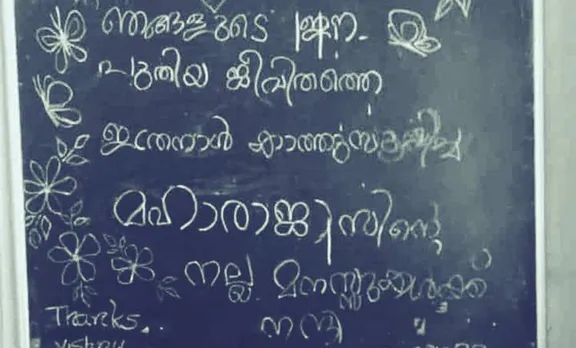 ഞങ്ങളുടെ ഈ
പുതിയ ജീവിതത്തെ
ഇത്രനാൾ കാത്തുസൂക്ഷിച്ച
മഹാരാജാസിന്റെ
നല്ല മനസ്സുകൾക്ക്
Thanks.. നന്ദി